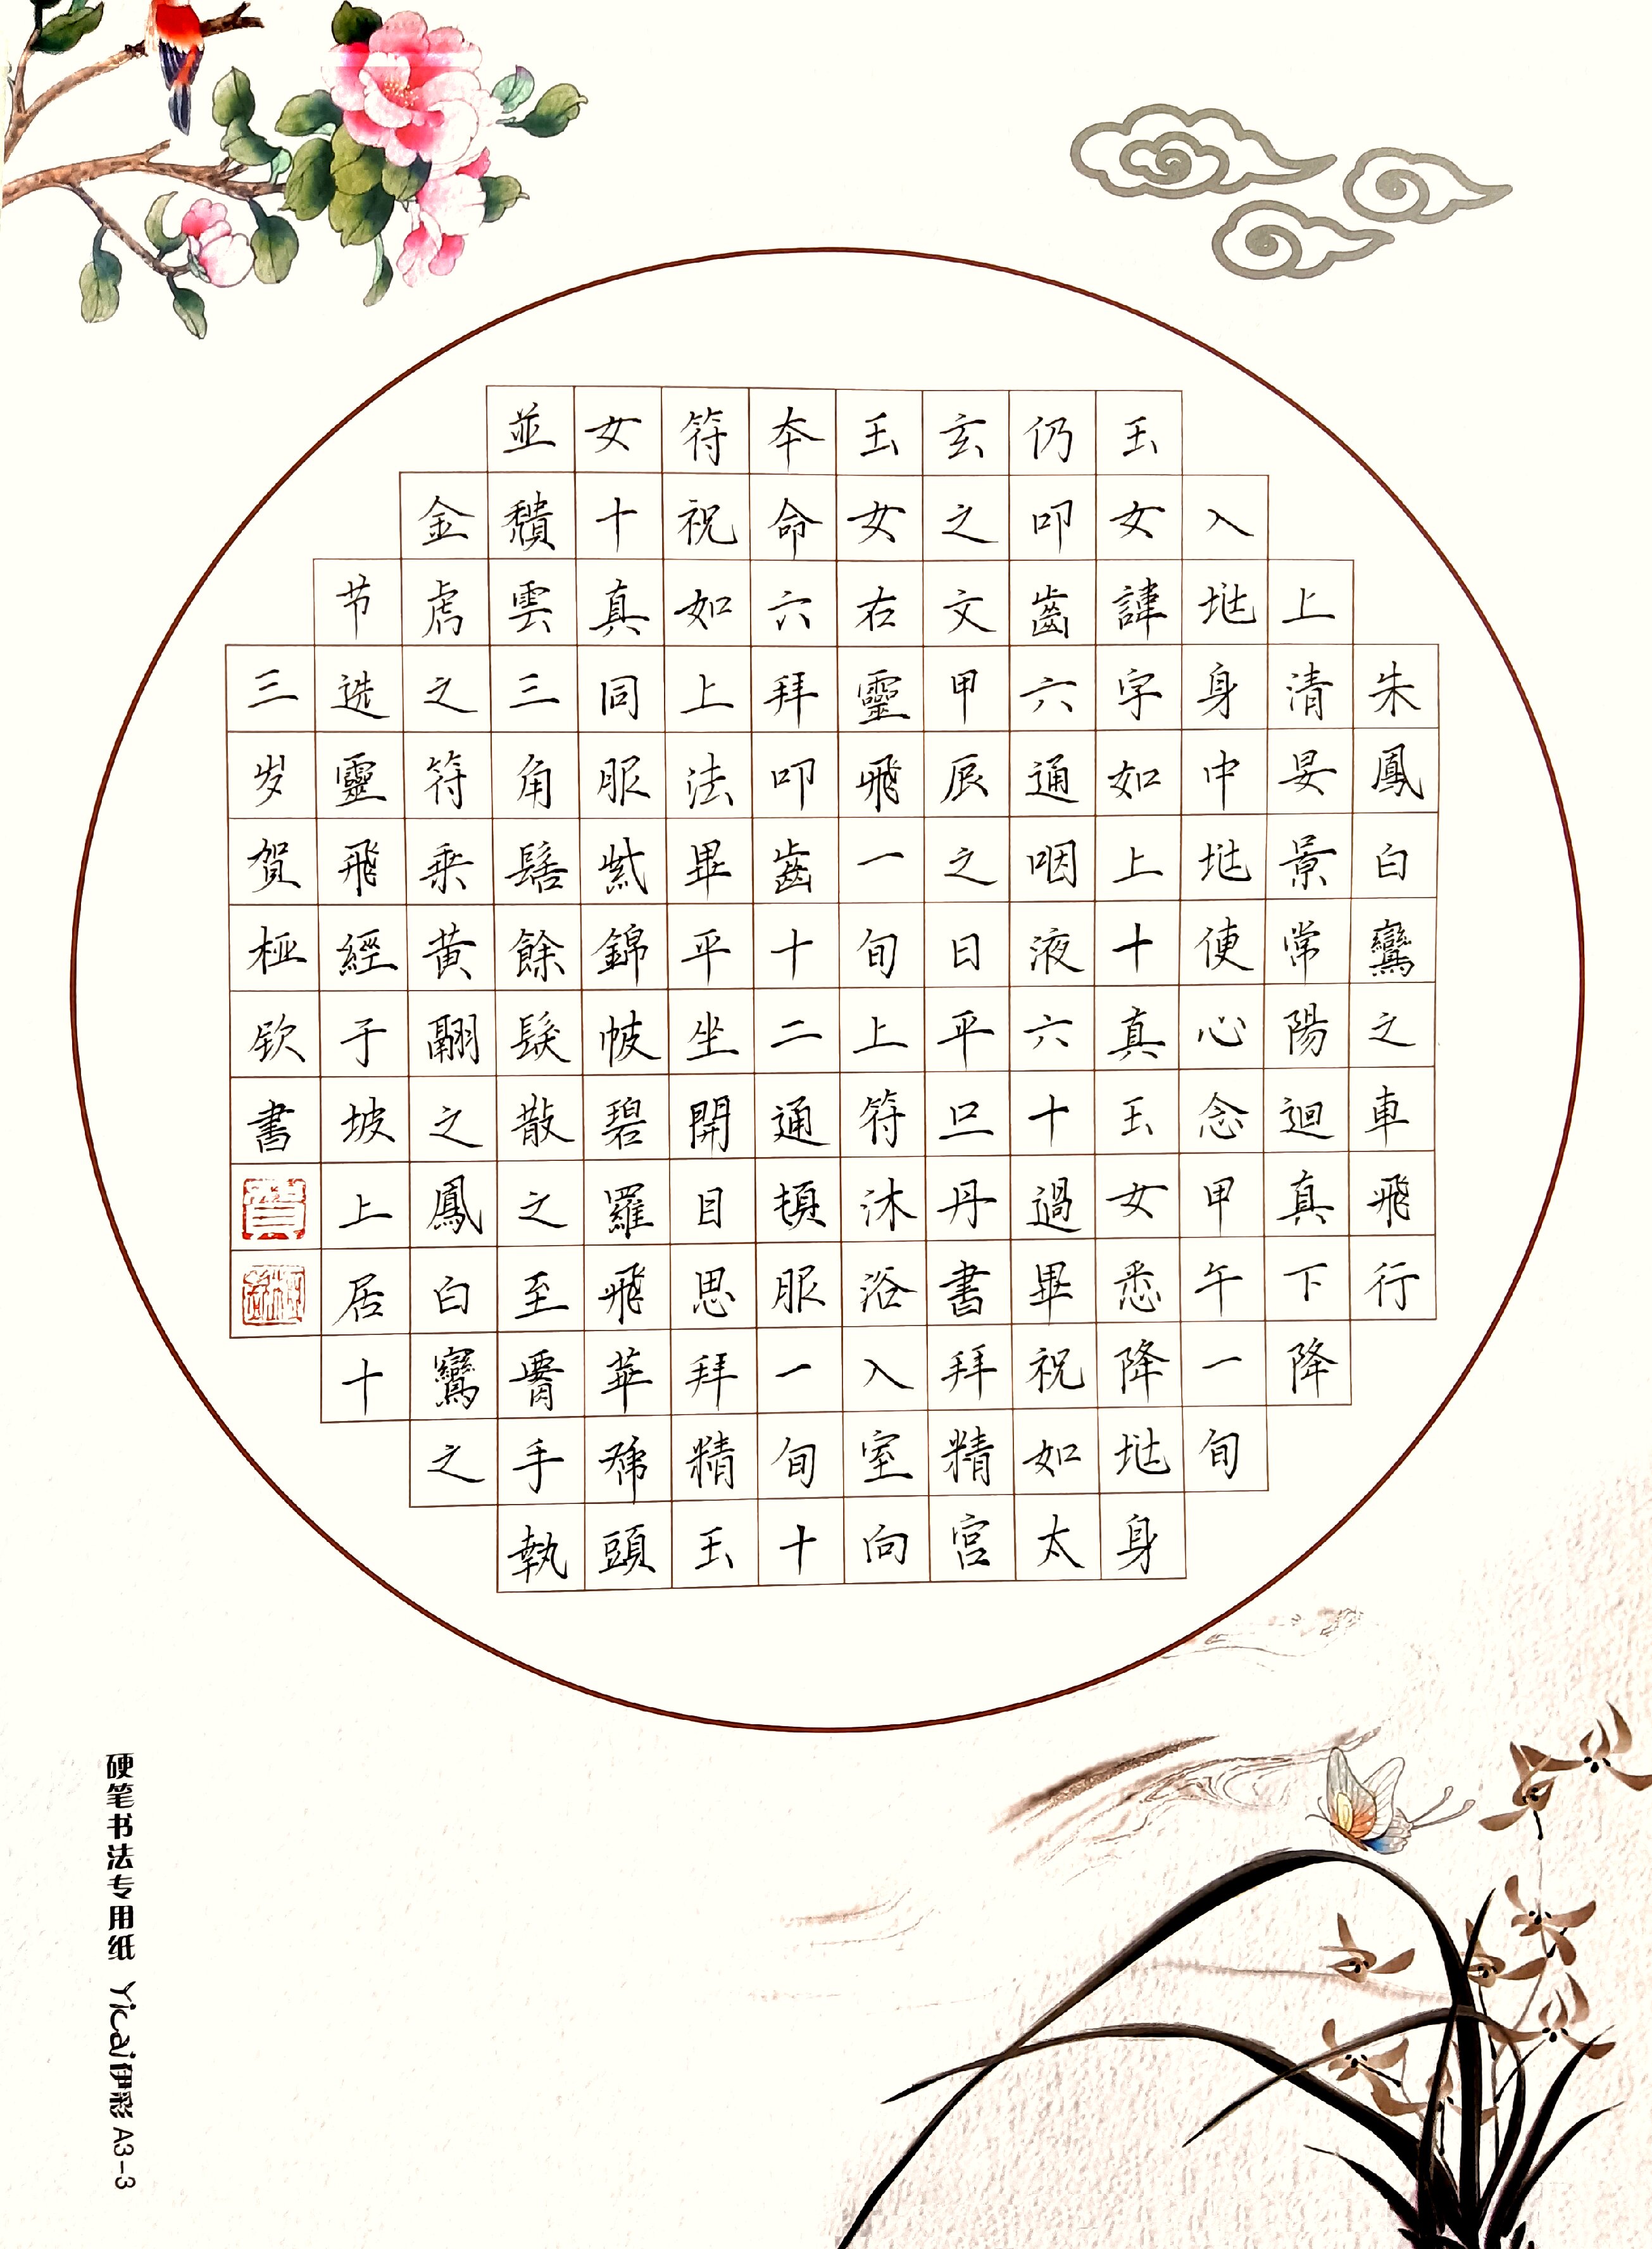 朱鳳白鸞之車飛行
上清晏景常陽迴真下降
入地身中地使心念甲午一旬
玉女諱字如上十真玉女悉降地身
仍叩齒六通咽液六十過畢祝如太
玄之文甲辰之日平旦丹書拜精宮
玉女右靈飛一旬上符沐浴入室向
本命六拜叩齒十二通頓服一旬十
符祝如上法畢平坐開目思拜精玉
女十真同服紫錦帔碧羅飛華帬頭
並頹雲三角髻餘髮散之至腰手執
金虎之符乘黃翮之鳳白鸞之
节选靈飛經于坡上居十
三岁贺桠钦書
硬笔书法专用纸 Yicai伊彩 A3-3